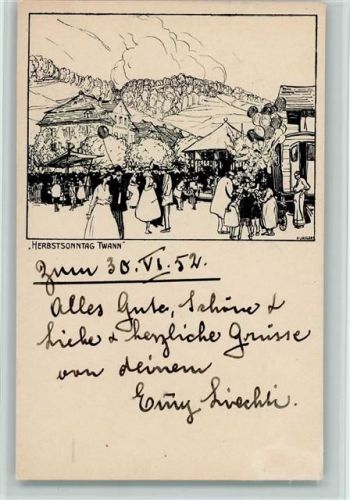 „HERBSTSONNTAG TWANN"
Zum 30. VI. 52.
Alles Gute, Schöne &
Liebe & herzliche Grüsse
von deinem
Emmy Liechti.